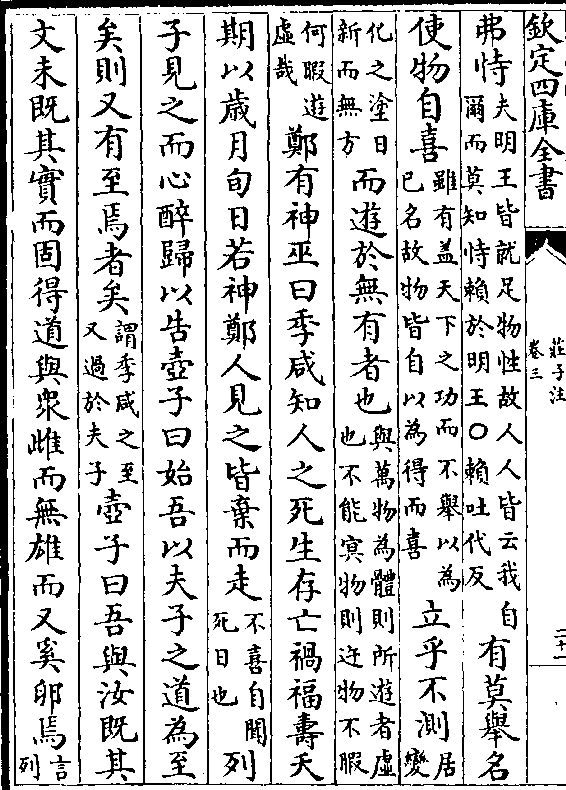 欽定四庫全書
莊子注
卷三
二十一
弗恃夫明王皆就足物性故人人皆云我自
爾而莫知恃賴於明王○賴吐代反有莫舉名
使物自喜雖有蓋天下之功而不舉以為
已名故物皆自以為得而喜立乎不測居變
化之塗日
新而無方而遊於無有者也與萬物為體則所遊者虛
也不能㝠物則迕物不暇
何暇遊
虛哉鄭有神巫曰季咸知人之死生存亡禍福壽夭
期以歲月旬日若神鄭人見之皆棄而走不喜自聞
死日也列
子見之而心醉歸以告壺子曰始吾以夫子之道為至
矣則又有至焉者矣謂季咸之至
又過於夫子壺子曰吾與汝既其
文未既其實而固得道與衆雌而無雄而又奚卵焉言
列